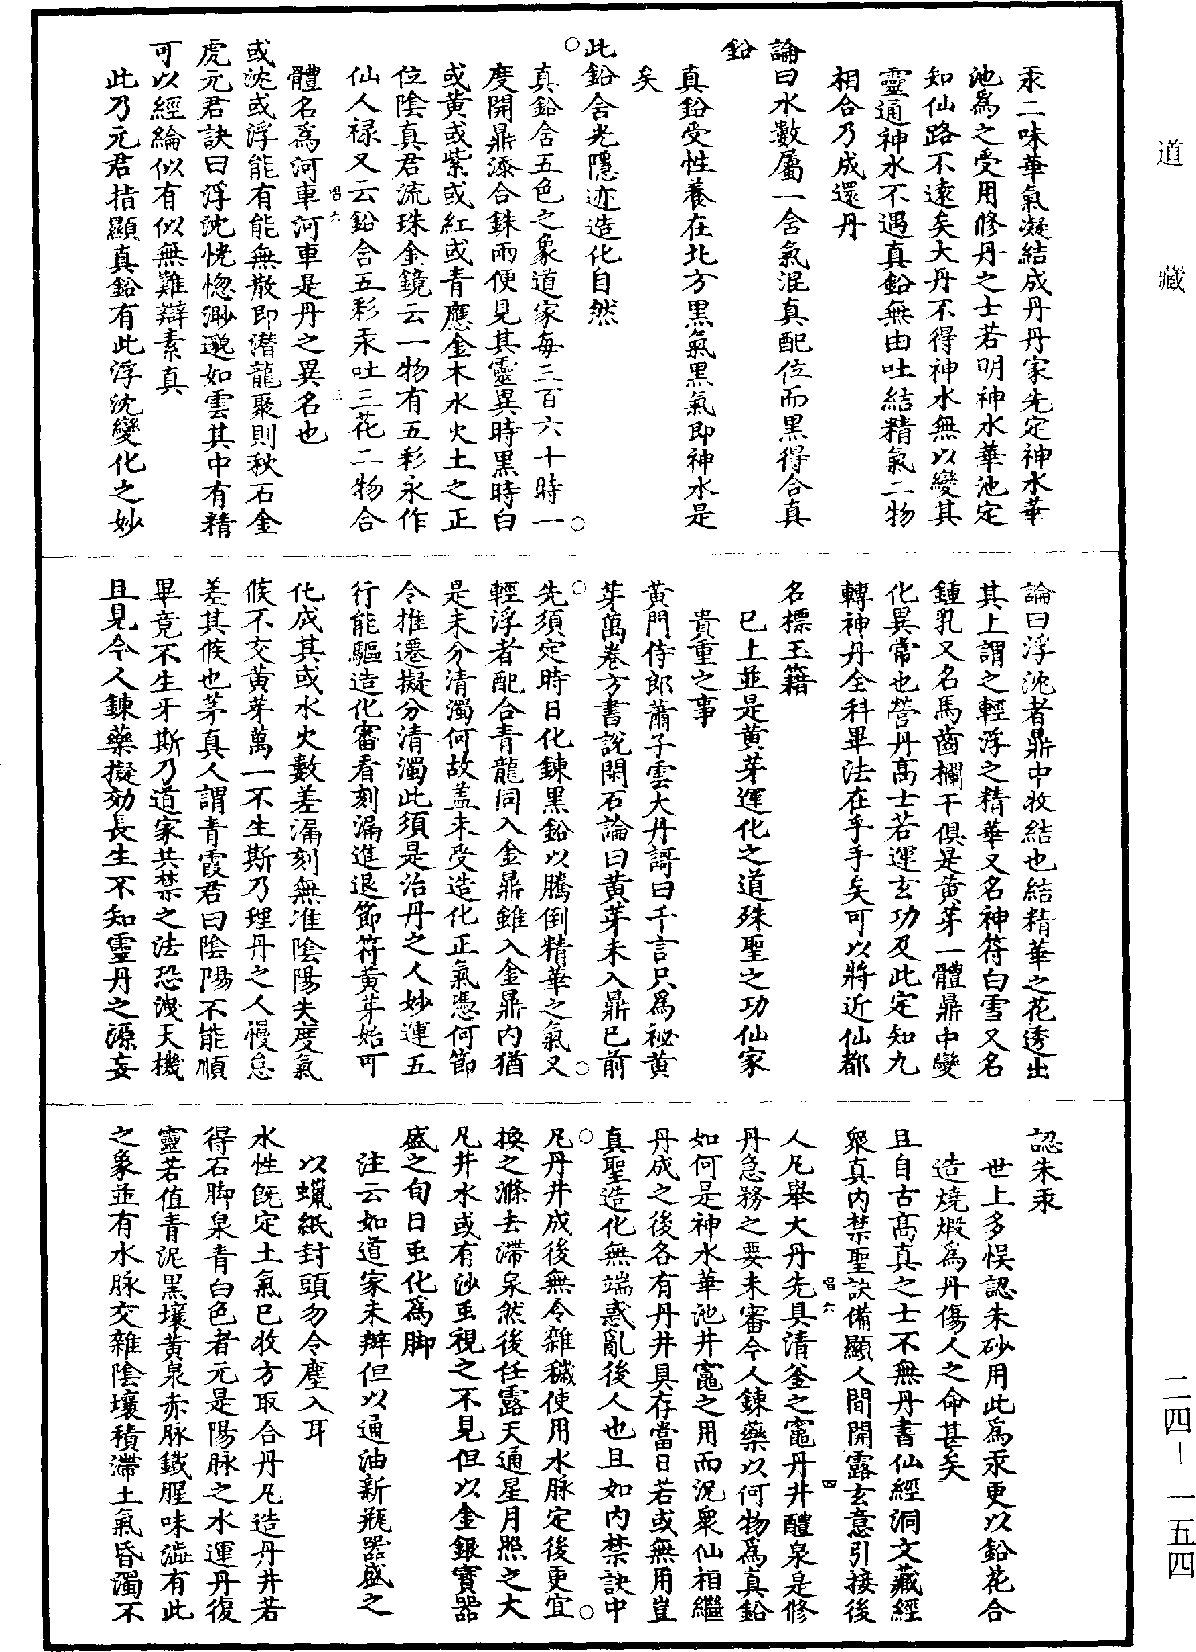 道藏
二四—一五四
汞二味華氣凝結成丹丹家先定神水華
池爲之受用修丹之士若明神水華池定
知仙路不遠矣大丹不得神水無以變其
靈通神水不遇真鉛無由吐結精氣二物
相合乃成還丹
論曰水數屬一含氣混真配位而黑得合真
鉛
真鉛受性養在北方黑氣黑氣即神水是
矣
此鉛含光隱迹造化自然
真鉛含五色之象道家每三百六十時一
度開鼎添合銖兩便見其靈異時黑時白
或黃或紫或紅或青應金木水火土之正
位陰真君流珠金鏡云一物有五彩永作
仙人祿又云鉛含五彩汞吐三花二物合
體名爲河車河車是丹之異名也
或沈或浮能有能無散即潛龍聚則秋石金
虎元君訣曰浮沈恍惚渺邈如雲其中有精
可以經綸似有似無難辯素真
此乃元君指顯真鉛有此浮沈變化之妙
論曰浮沈者鼎中收結也結精華之花透出
其上謂之輕浮之精華又名神符白雪又名
鍾乳又名馬齒欄干俱是黃芽一體鼎中變
化異常也營丹高士若運玄功及此定知九
轉神丹全科畢法在乎手矣可以將近仙都
名標玉籍
已上並是黃芽運化之道殊聖之功仙家
貴重之事
黃門侍郎蕭子雲大丹謌曰千言只爲祕黃
芽萬卷方書說閑石論曰黃芽未入鼎已前
先須定時日化鍊黑鉛以騰倒精華之氣又
輕浮者配合青龍同入金鼎雖入金鼎內猶
是未分清濁何故盖未受造化正氣憑何節
令推遷擬分清濁此須是治丹之人妙運五
行能驅造化審看刻漏進退節符黃芽始可
化成其或水火數差漏刻無准陰陽失度氣
候不交黃芽萬一不生斯乃理丹之人慢怠
差其候也茅真人謂青霞君曰陰陽不能順
畢竟不生牙斯乃道家共禁之法恐洩天機
且見今人鍊藥擬効長生不知靈丹之源妄
認朱汞
世上多悮認朱砂用此爲汞更以鉛花合
造燒煅爲丹傷人之命甚矣
且自古高真之士不無丹書仙經洞文藏經
衆真內禁聖訣備顯人間開露玄意引接後
人凡舉大丹先具清釜之竈丹井醴泉是修
丹急務之要未審今人鍊藥以何物爲真鉛
如何是神水華池井竈之用而況衆仙相繼
丹成之後各有丹井具存當日若或無用豈
真聖造化無端惑亂後人也且如內禁訣中
凡丹井成後無令雜穢使用水脉定後更宜
換之滌去滯泉然後任露天通星月照之大
凡井水或有沙䖝視之不見但以金銀寶器
盛之旬日䖝化爲脚
注云如道家未辦但以通油新瓶器盛之
以蠟紙封頭勿令塵入耳
水性旣定土氣已收方取合丹凡造丹井若
得石脚泉青白色者元是陽脉之水運丹復
靈若值青泥黑壤黃泉赤脉鐵腥味澁有此
之象並有水脉交雜陰壤積滯土氣昏濁不